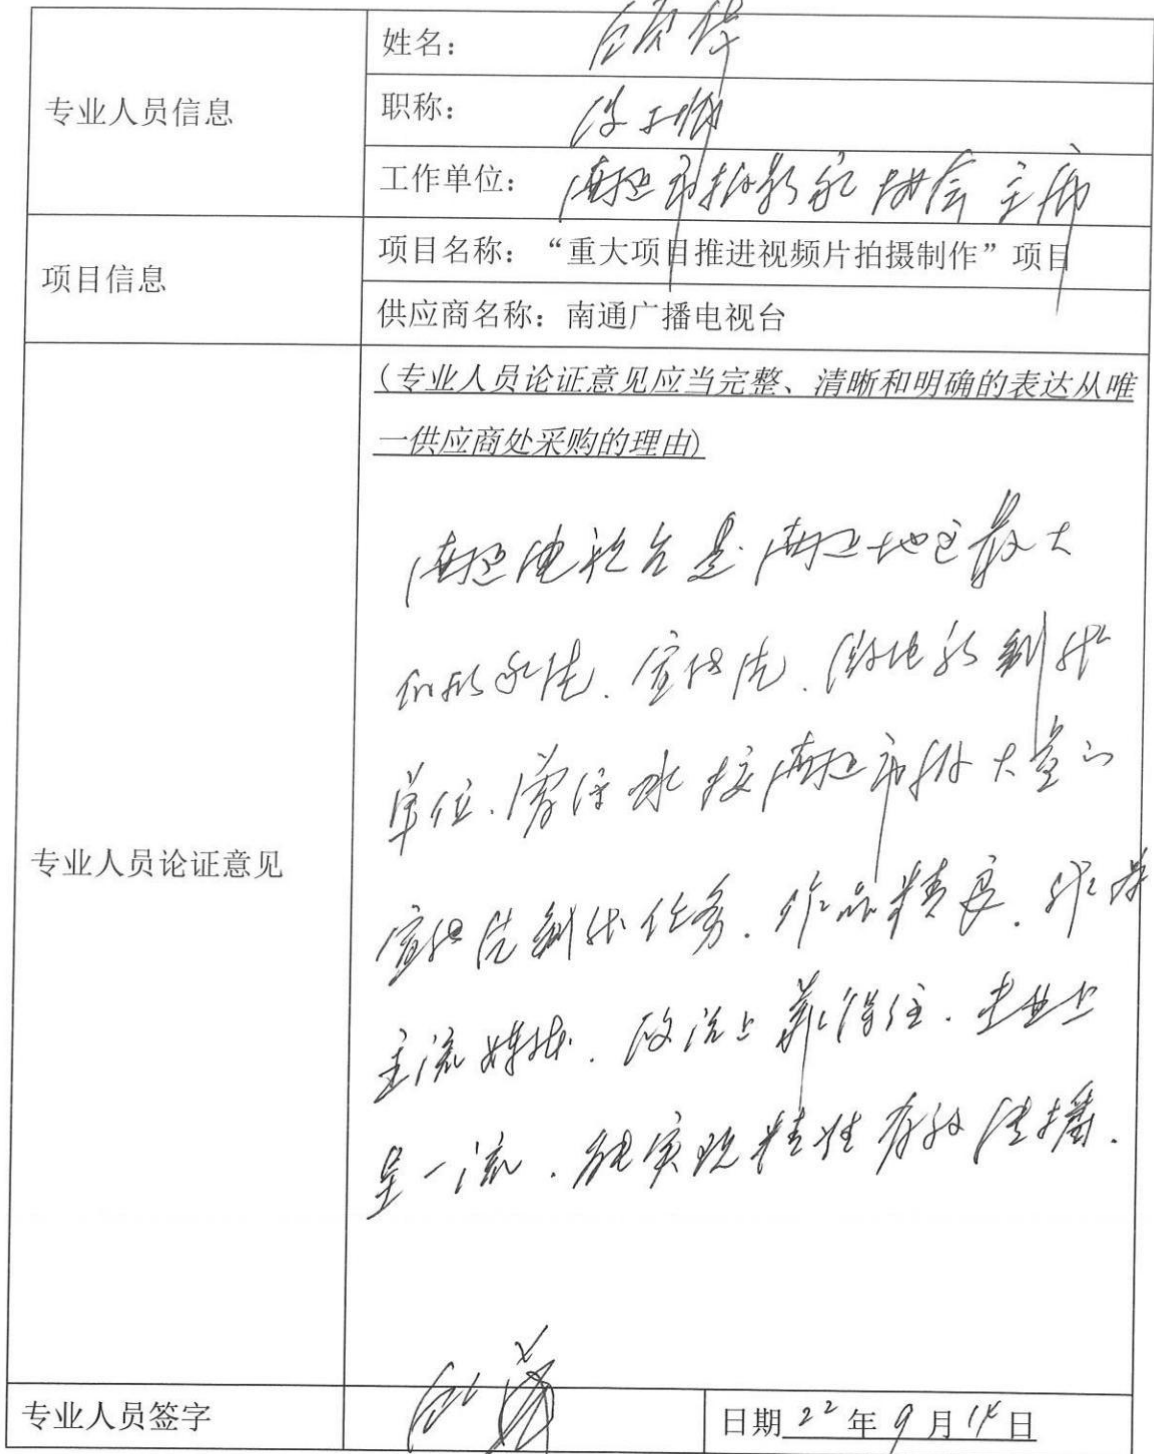 专业人员信息
姓名：
职称：
工作单位：南通市摄影家协会主席
项目信息
项目名称：“重大项目推进视频片拍摄制作”项目
供应商名称：南通广播电视台
专业人员论证意见
（专业人员论证意见应当完整、清晰和明确的表达从唯
一供应商处采购的理由）
南通电视台是南通地区最大
单位.曾经承接南通市级大量的
宣传片制作任务.作品精良.作为
主流媒体.政治上靠得住.专业上
呈一流.能实现精准有效传播.
专业人员签字
日期 22 年 9 月 14 日